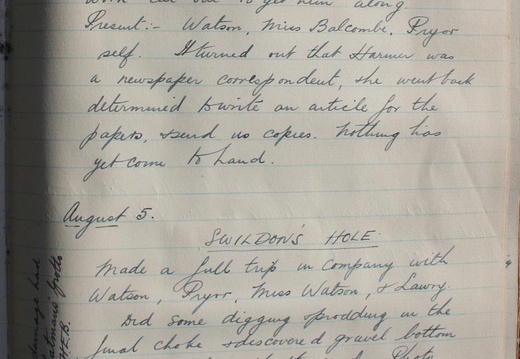 to get him along.
Present:- Watson, Miss Balcombe, Pryor
self. It turned out that Harmer was
a newspaper correspondent, & he went back
determined to write an article for the
papers, & send us copies. Nothing has
yet come to hand.
August 5.
SWILDON'S HOLE
Made a full trip in company with
Watson, Pryor, Miss Watson, & Lawry.
Did some digging & prodding in the
final choke & discovered gravel bottom
damage had
grotto